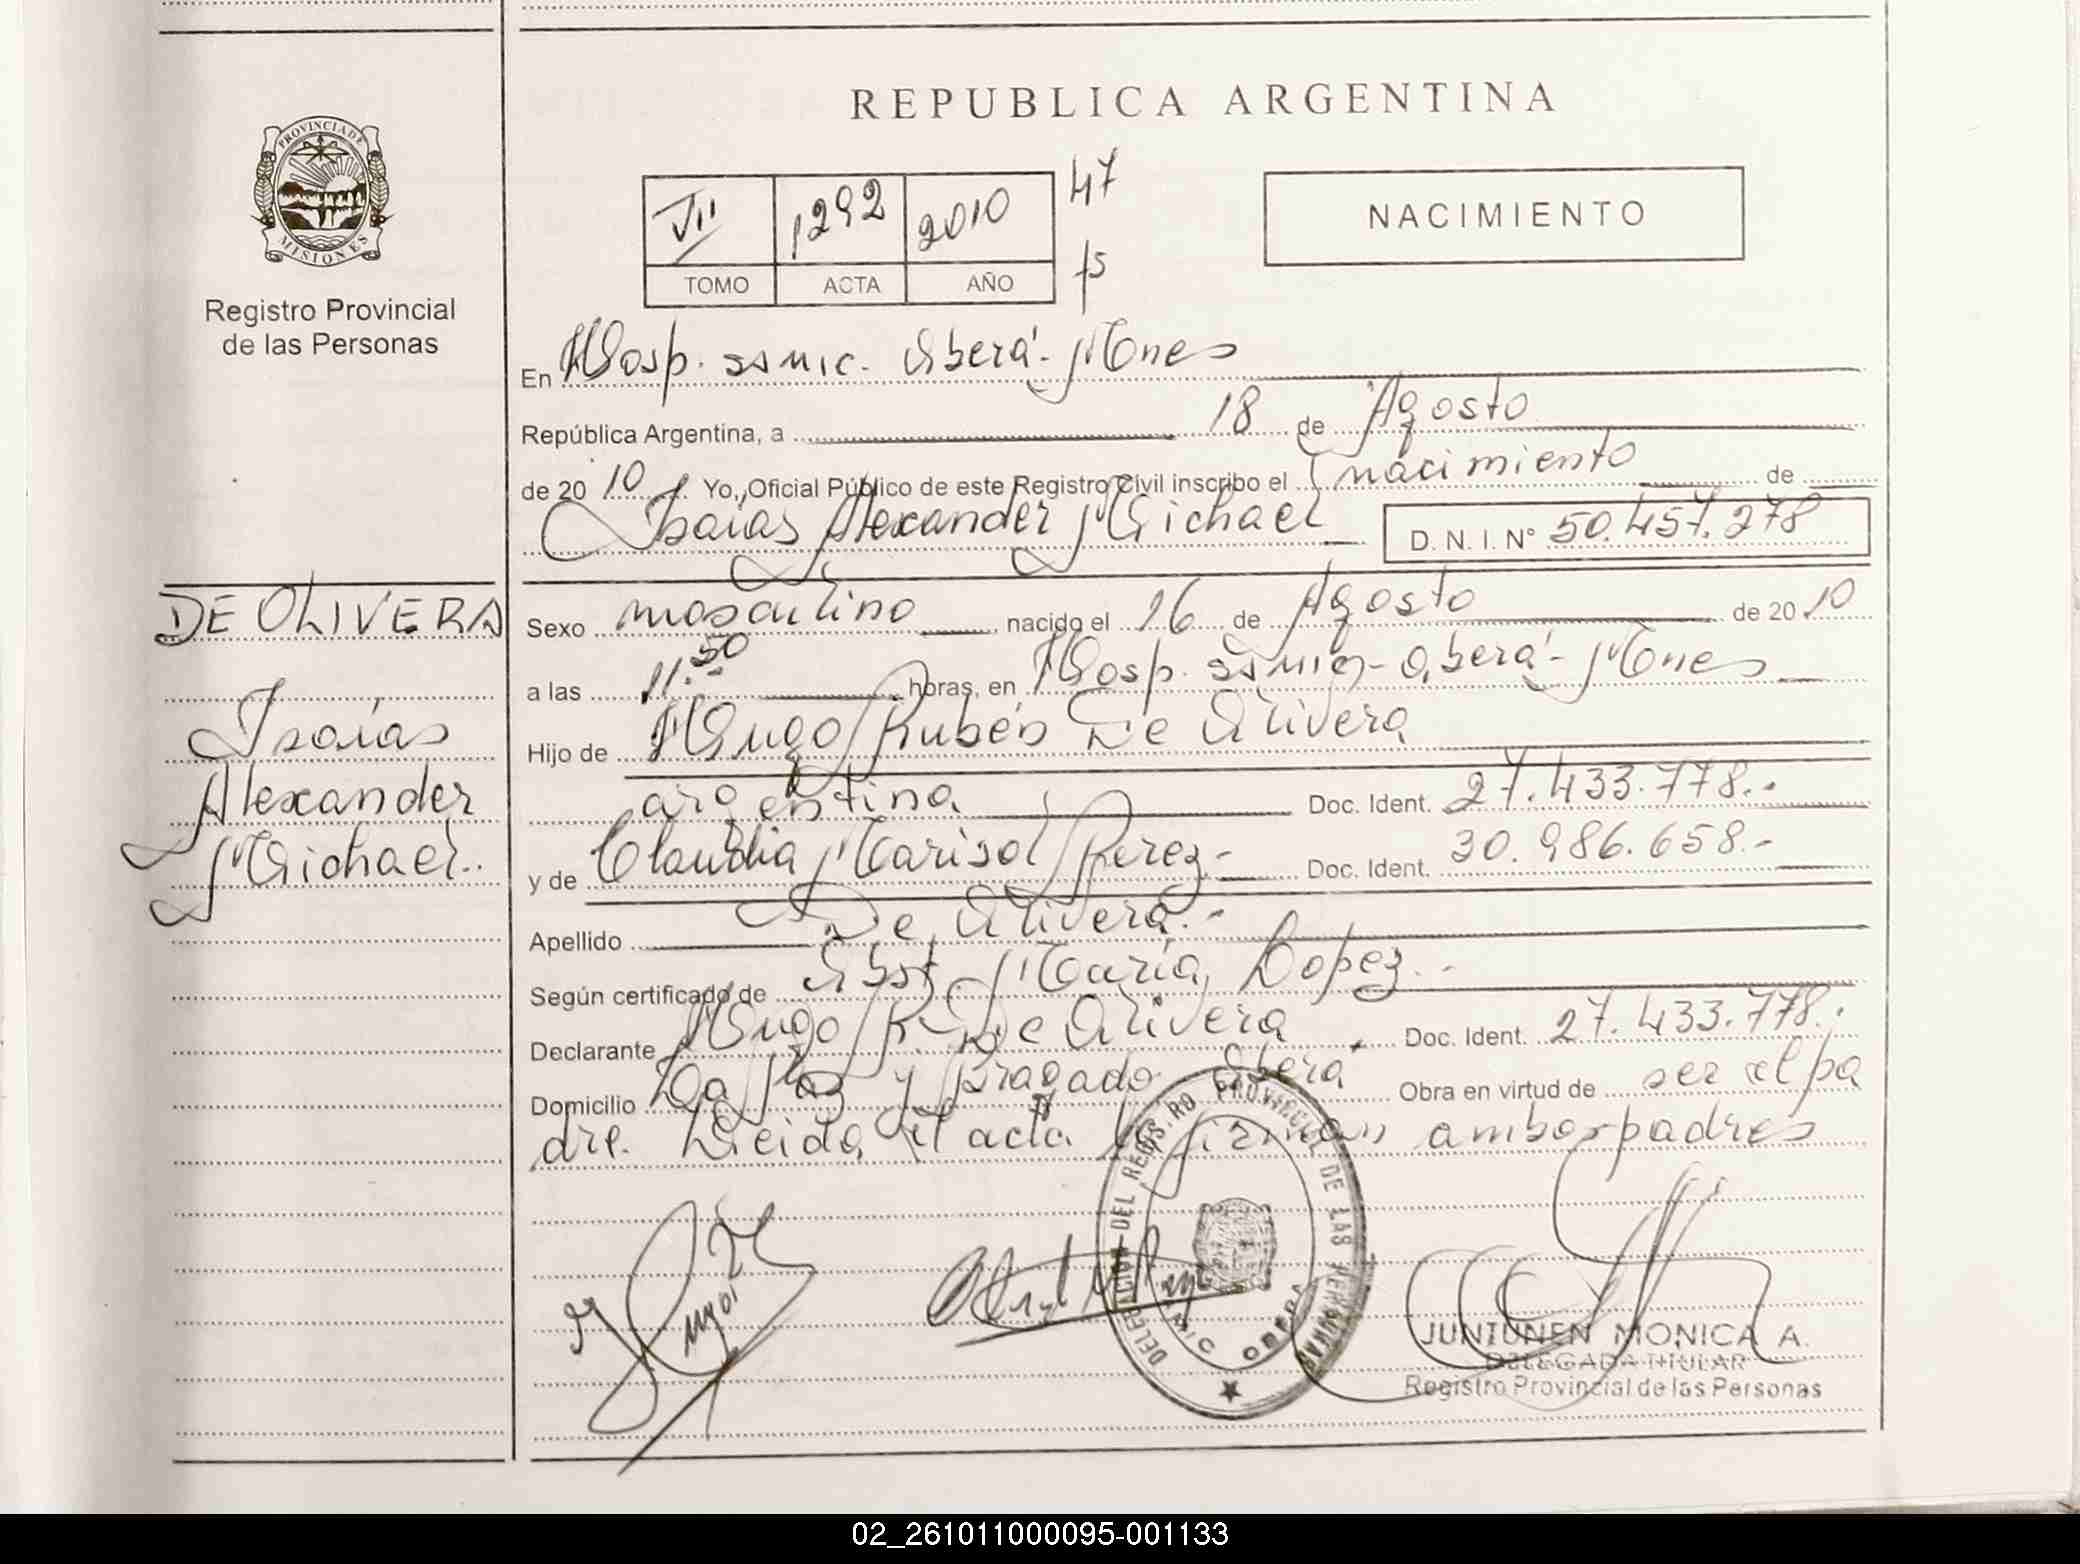 REPUBLICA ARGENTINA
PROVINCIA DE
MISIONES
Registro Provincial
de las Personas
VII 1292 2010 47
TOMO ACTA AÑO
NACIMIENTO
En Hosp. Oberá - Mnes
República Argentina, a 18 de Agosto
de 2010 Yo, Oficial Público de este Registro Civil inscribo el nacimiento de
Isaías Alexander Michael D. N. I. N° 50.457.278
DE OLIVERA
Isaías
Alexander
Michael.
Sexo masculino nacido el 16 de Agosto de 2010
a las 11:50 horas, en Hosp. Oberá - Mnes
Hijo de Hugo Rubén De Olivera
argentina Doc. Ident. 27.433.778.-
y de Claudia Marisol Perez - Doc. Ident. 30.986.658.-
Apellido De Olivera.-
Según certificado de Obst. María Lopez.-
Declarante Hugo R. De Olivera Doc. Ident. 27.433.778.
Domicilio La Paz y Bragado Oberá Obra en virtud de ser el pa
dre. Leida el acta la firman ambos padres
DELEGACION DEL REGISTRO PROVINCIAL DE LAS PERSONAS
OBERA
JUNTUNEN MONICA A.
DELEGADA TITULAR
Registro Provincial de las Personas
02_261011000095-001133